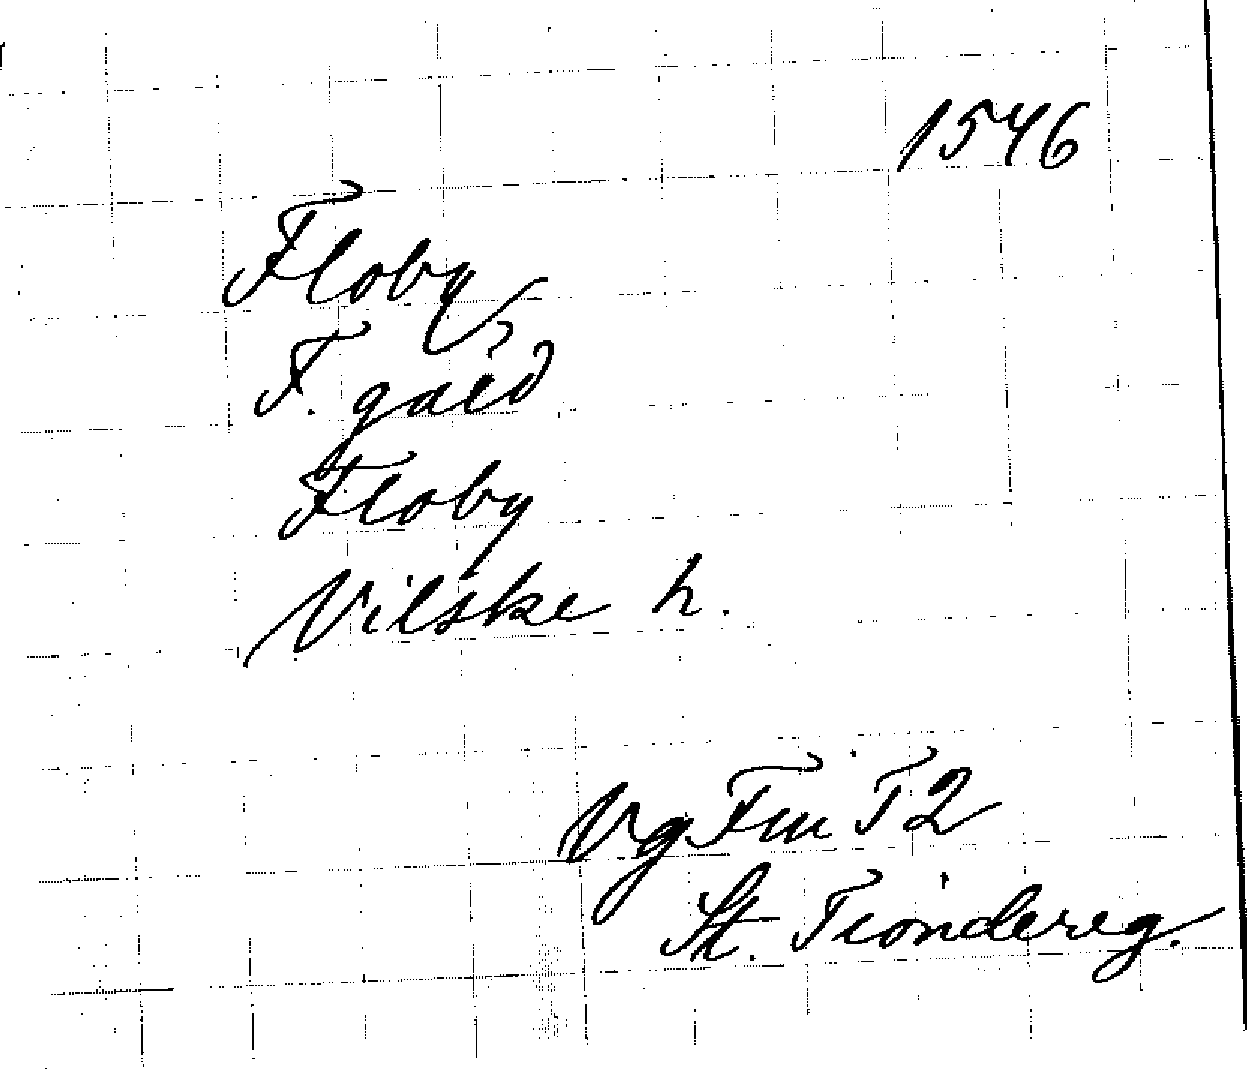 1546
Floby
F. gäld
Floby
Vilske h.
Vg Fm T2
St. Tiondereg.